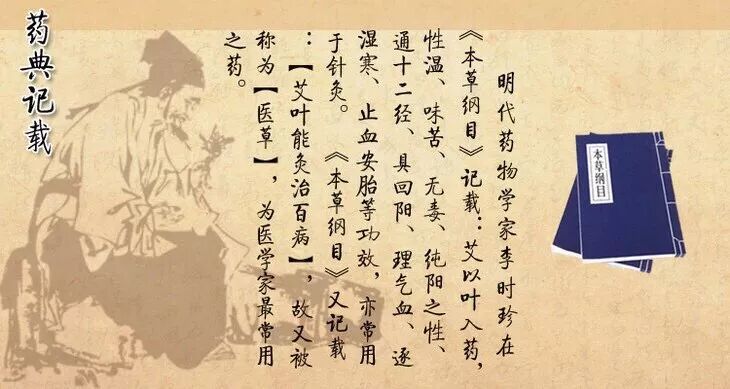 药典记载
明代药物学家李时珍在
《本草纲目》记载：艾以叶入药，
性温、味苦、无毒、纯阳之性、
通十二经、具回阳、理气血、逐
湿寒、止血安胎等功效，亦常用
于针灸。《本草纲目》又记载
：【艾叶能灸治百病】，故又被
称为【医草】，为医学家最常用
之药。
本草纲目